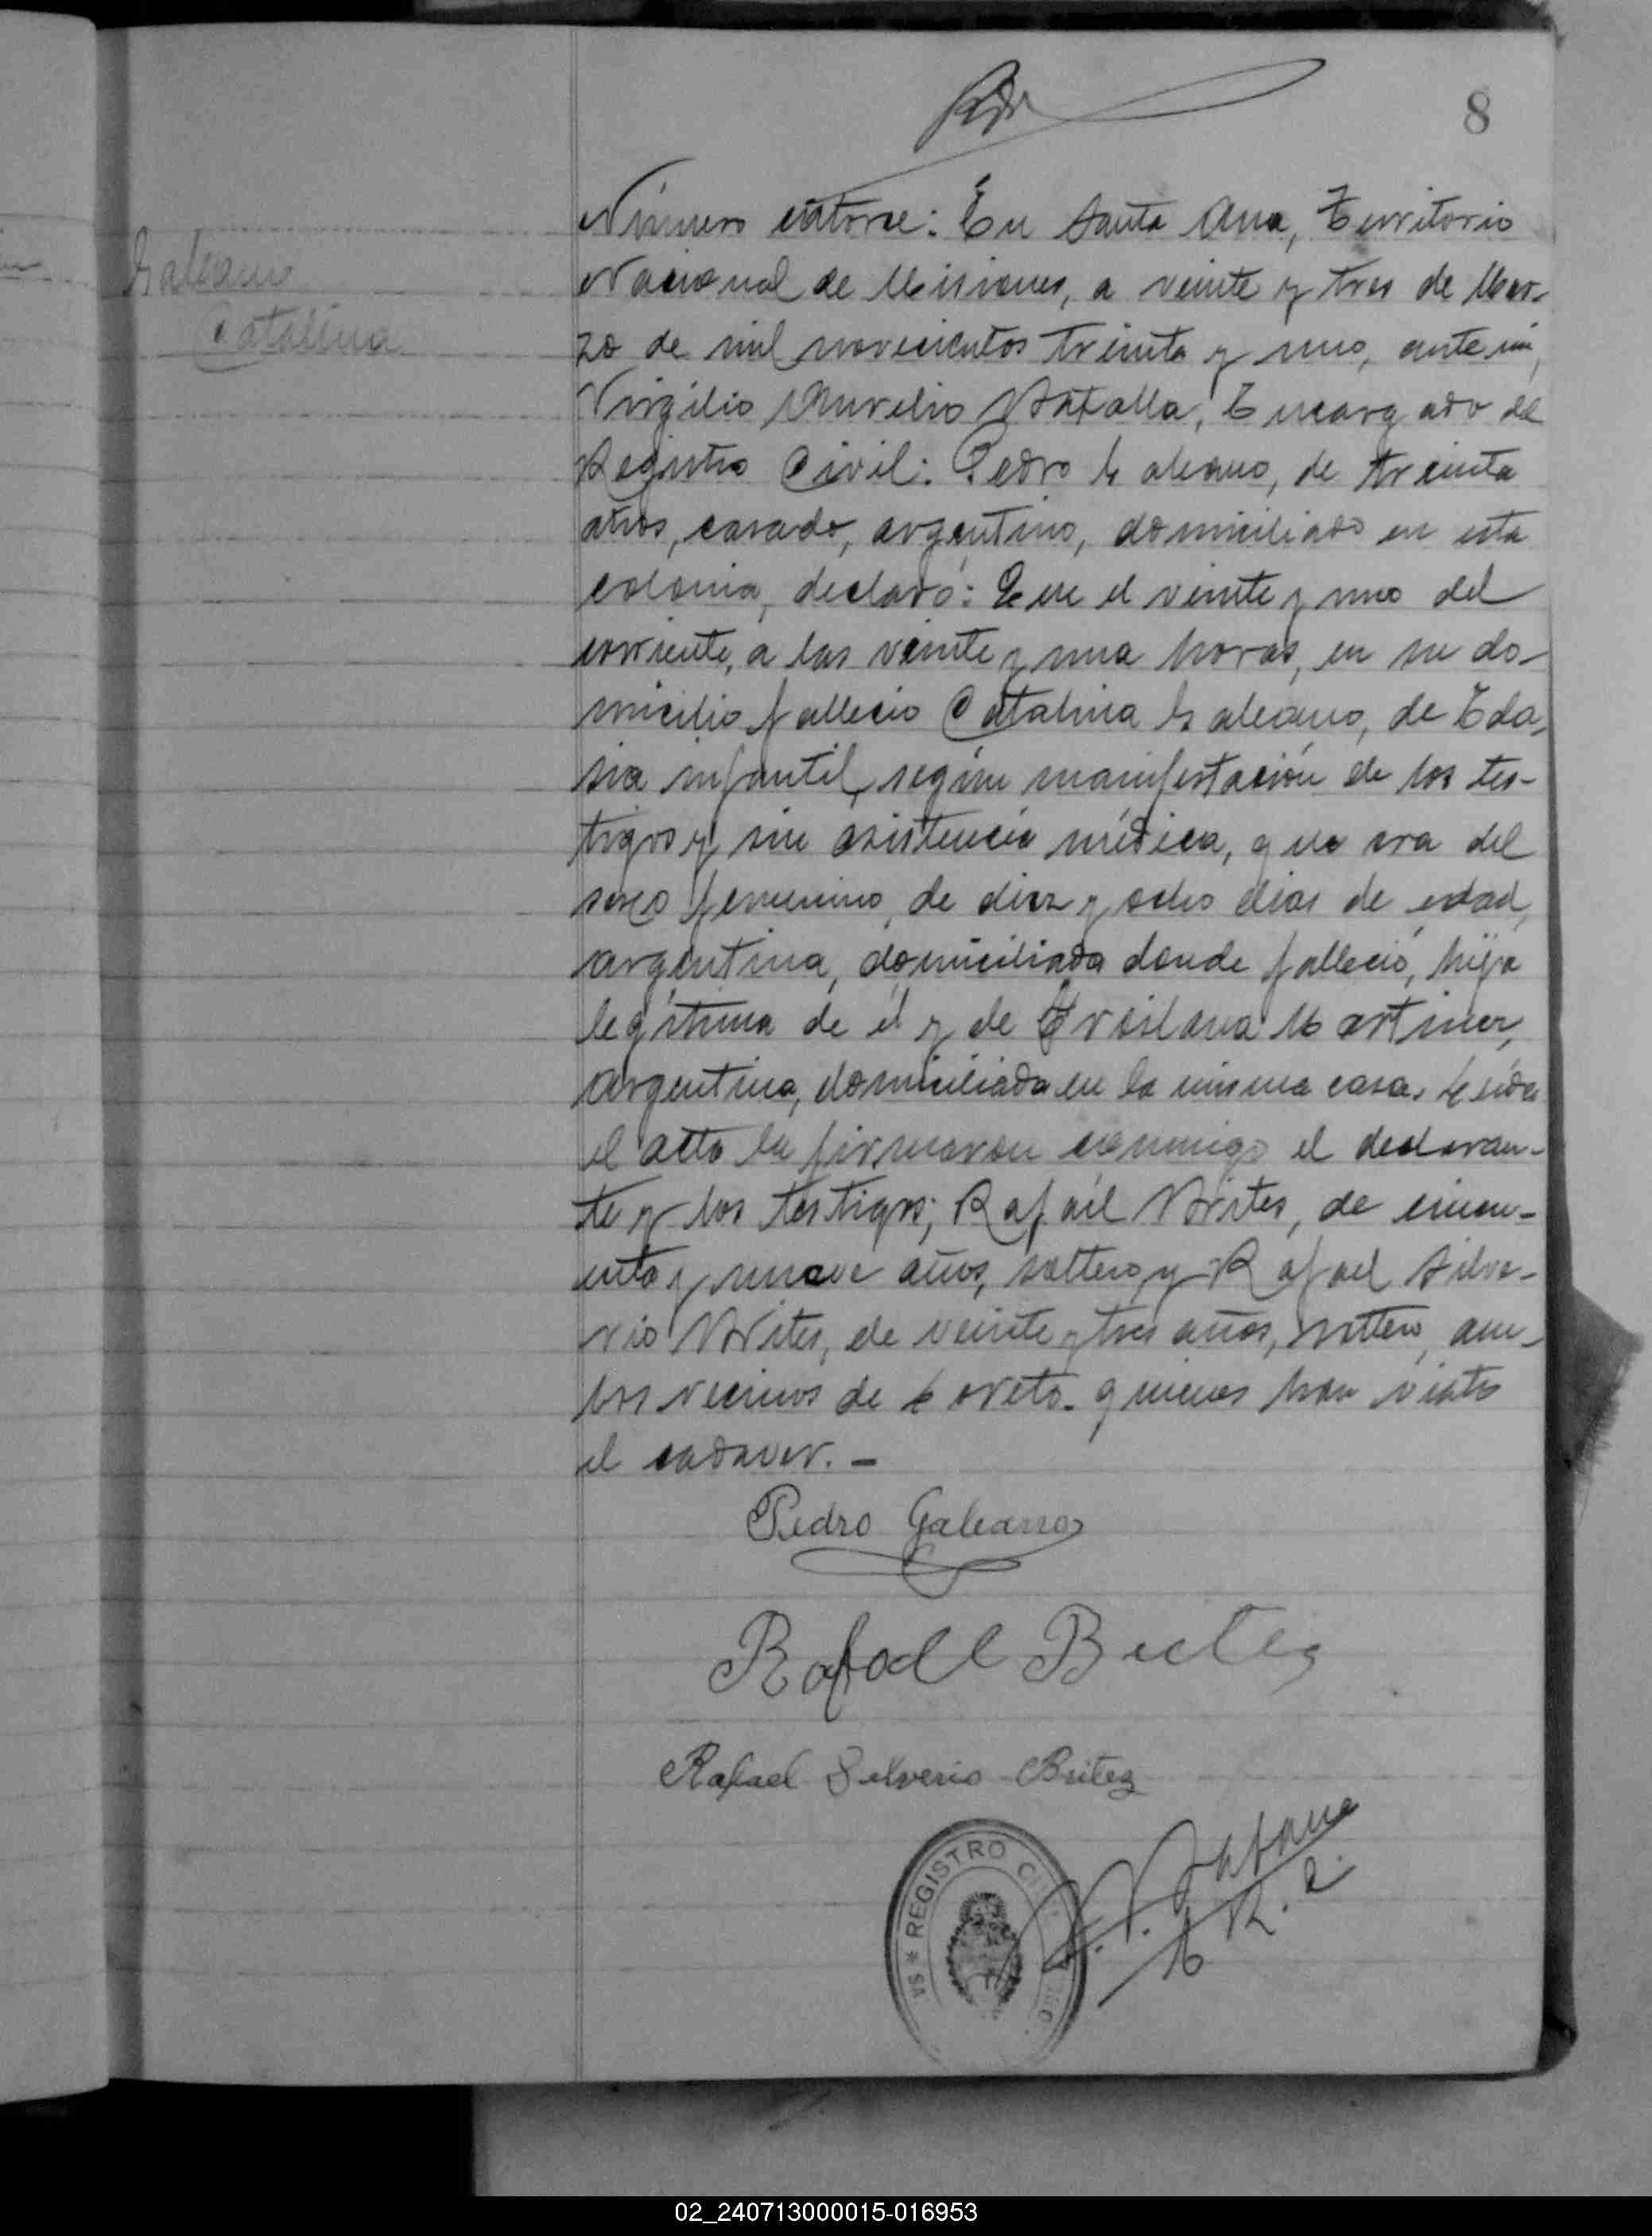 8
Galeano
Catalina
Número catorce: En Santa Ana, Territorio
Nacional de Misiones, a veinte y tres de Mar-
zo de mil novecientos treinta y uno, ante mi,
Virgilio Aurelio Batalla, Encargado del
Registro Civil: Pedro Galeano, de treinta
años, casado, argentino, domiciliado en esta
colonia, declaró: Que el veinte y uno del
corriente, a las veinte y una horas, en su do-
micilio fallecio Catalina Galeano, de
infantil, según manifestación de los tes-
tigos y sin asistencia médica, que era del
sexo femenino, de diez y ocho dias de edad,
argentina, domiciliada donde falleció, hija
legítima de él y de Martinez,
argentina, domiciliada en la misma casa. Leida
el acta la firmaron conmigo el declaran-
te y los testigos; Rafaél Brites, de cincu-
enta y nueve años, soltero y Rafael Silve-
rio Brites, de veinte y tres años, soltero, am-
bos vecinos de Loreto. quienes han visto
el cadaver. -
Pedro Galeano
Rafael
Rafael Selverio Britez
REGISTRO
02_240713000015-016953